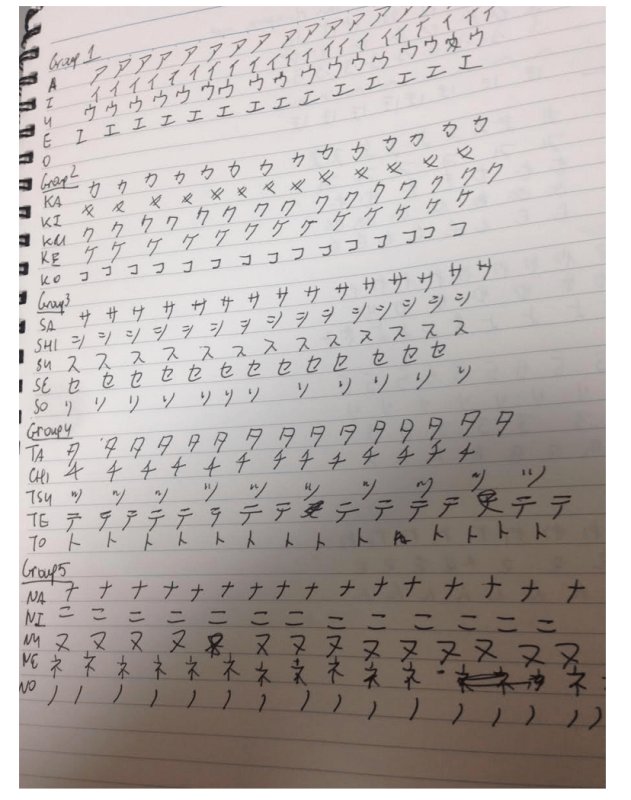 Group 1
A アアアアアアアアアアアアアア
I イイイイイイイイイイイイイイイイ
U ウウウウウウウウウウウウウウウ
E エエエエエエエエエエエエエエ
O
Group2
KA カカカカカカカカカカカカカカ
KI キキキキキキキキキキキキキ
KU ククククククククククククククク
KE ケケケケケケケケケケケケケ
KO ココココココココココココココ
Group3
SA サササササササササササササササ
SHI シシシシシシシシシシシシシシシ
SU スススススススススススス
SE セセセセセセセセセセセセセ
SO ソソソソソソソソソソソ
Group4
TA タタタタタタタタタタタタタタタ
CHI チチチチチチチチチチチチ
TSU ツツツツツツツツツツ
TE テテテテテテテテテテテテテテ
TO トトトトトトトトトトトトト
Group5
NA ナナナナナナナナナナナナナナナナ
NI ニニニニニニニニニニニニニ
NU ヌヌヌヌヌヌヌヌヌヌヌヌヌ
NE ネネネネネネネネネネネネ
NO ノノノノノノノノノノノノノノノノ